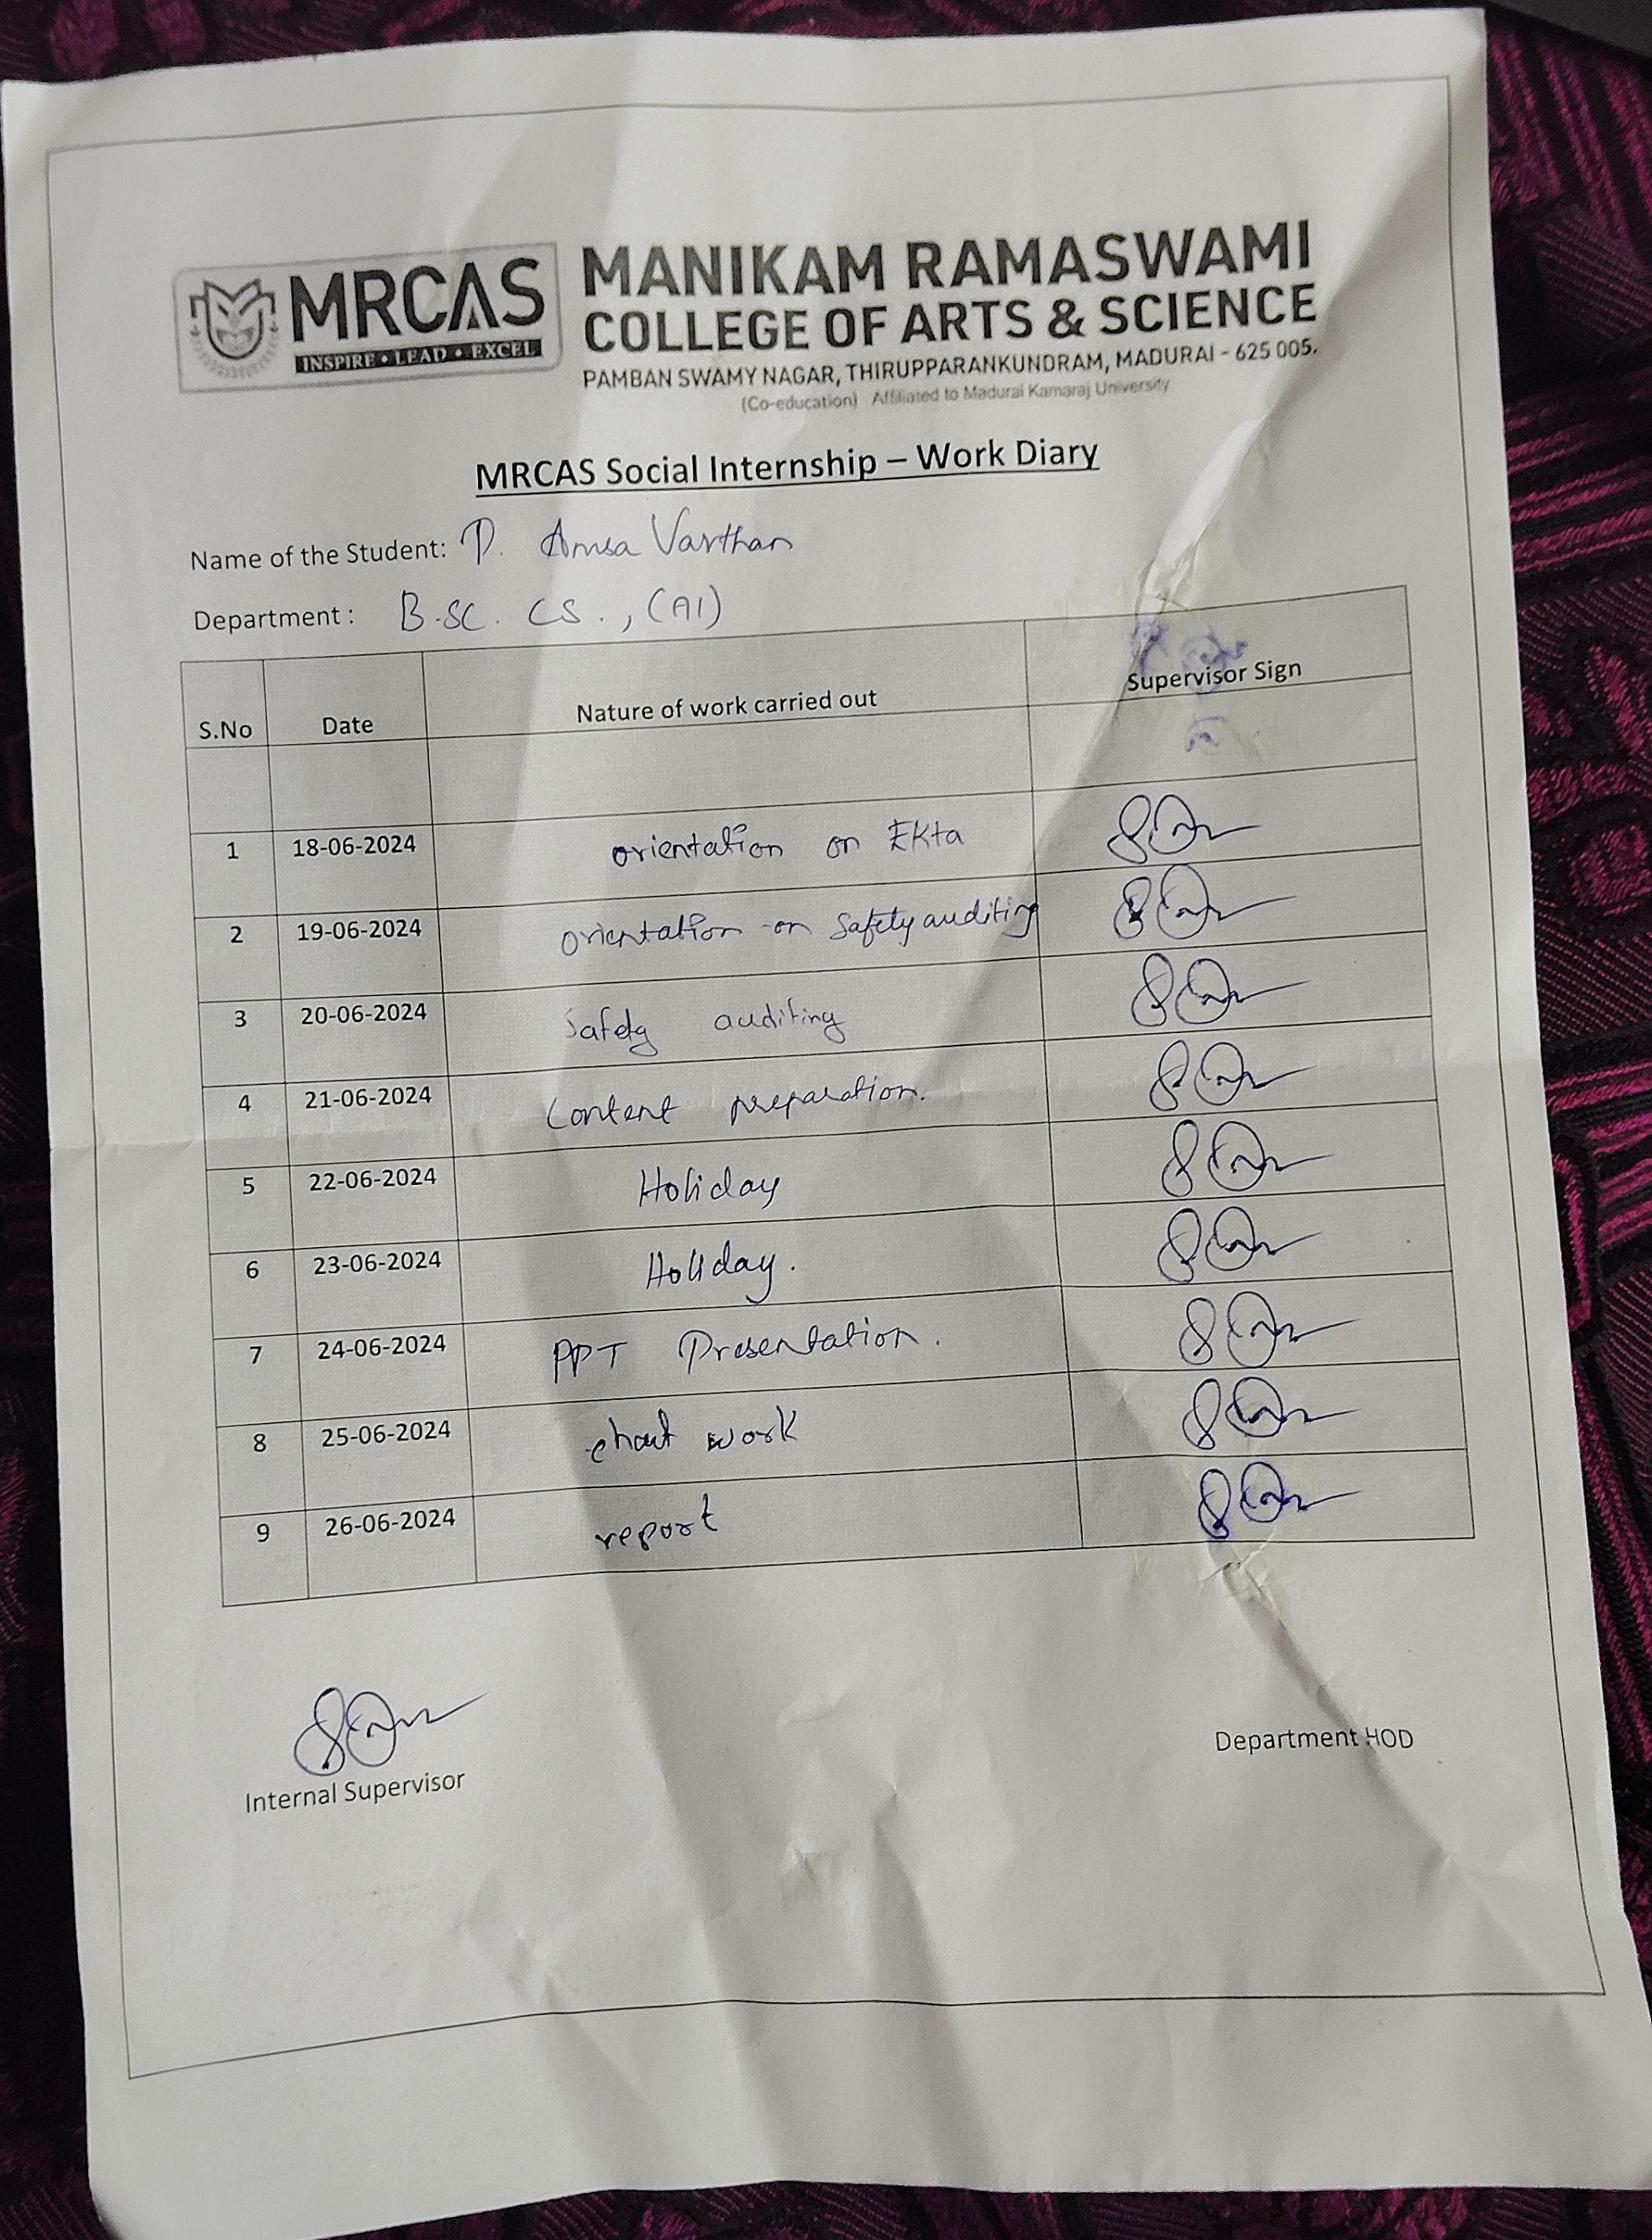 MRCAS
INSPIRE • LEAD • EXCEL
MANIKAM RAMASWAMI
COLLEGE OF ARTS & SCIENCE
PAMBAN SWAMY NAGAR, THIRUPPARANKUNDRAM, MADURAI - 625 005.
(Co-education) Affiliated to Madurai Kamaraj University
MRCAS Social Internship – Work Diary
Name of the Student: P. Amsa Varthan
Department : B.SC. CS., (AI)
S.No Date Nature of work carried out Supervisor Sign
1 18-06-2024 orientation on EKta
2 19-06-2024 orientation on Safety auditing
3 20-06-2024 Safety auditing
4 21-06-2024 Content preparation.
5 22-06-2024 Holiday
6 23-06-2024 Holiday.
7 24-06-2024 PPT Presentation.
8 25-06-2024 chart work
9 26-06-2024 report
Internal Supervisor
Department HOD